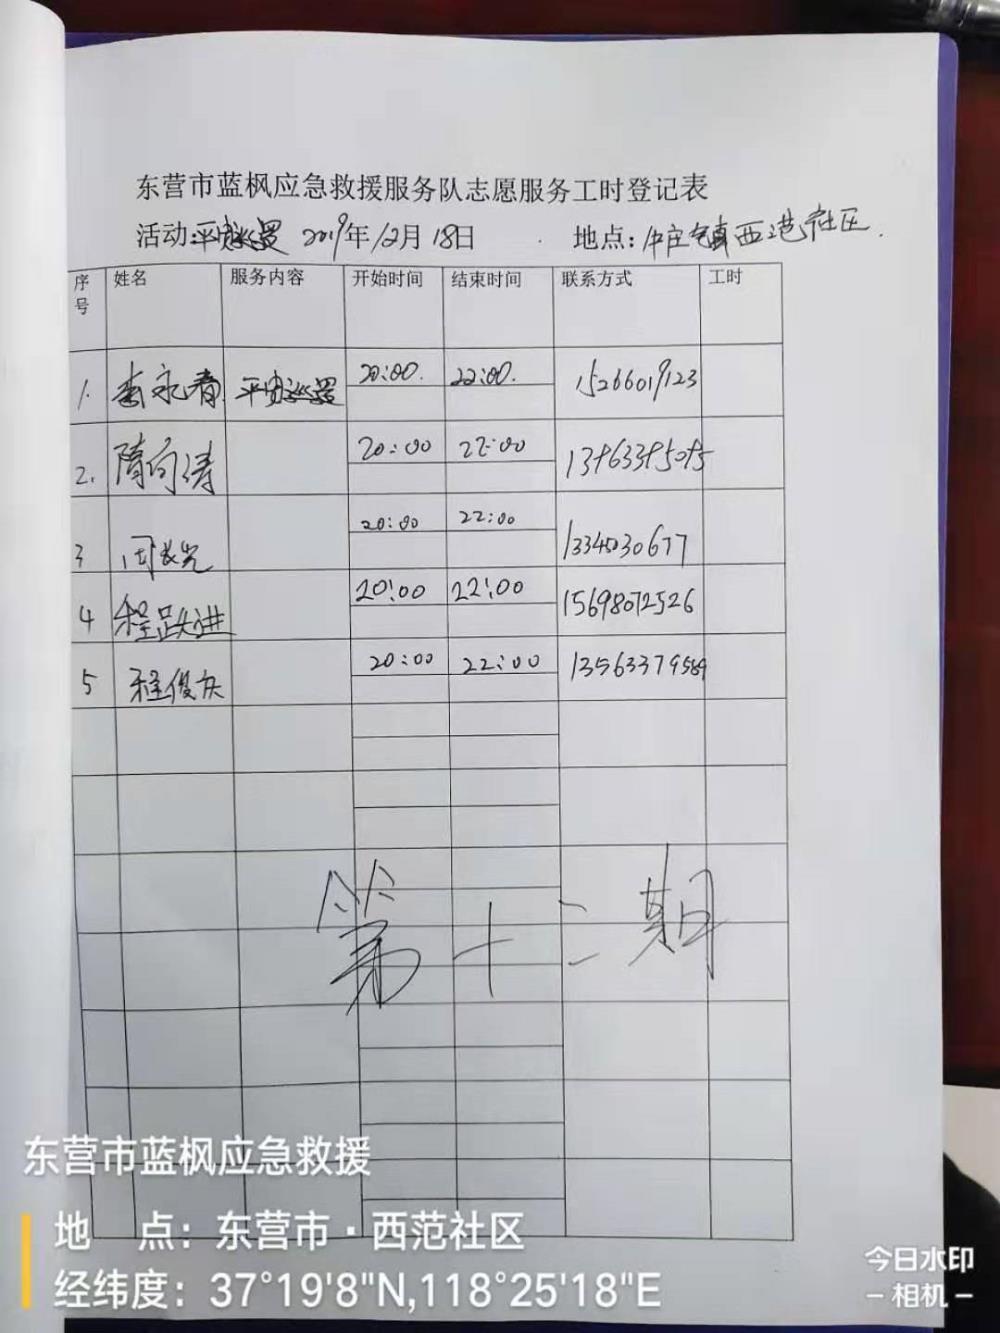 东营市蓝枫应急救援服务队志愿服务工时登记表
活动:平安巡逻 2019年12月18日 地点:牛庄镇西范社区.
序号 姓名 服务内容 开始时间 结束时间 联系方式 工时
1. 李永春 平安巡逻 20:00. 22:00. 15266019123
2. 隋向涛 20:00 22:00
3 周长光 20:00 22:00
4 程跃进 20:00 22:00 15698072526
5 程俊庆 20:00 22:00 13563379589
第十二期
东营市蓝枫应急救援
地 点: 东营市·西范社区
经纬度: 37°19'8"N,118°25'18"E
今日水印
–相机–